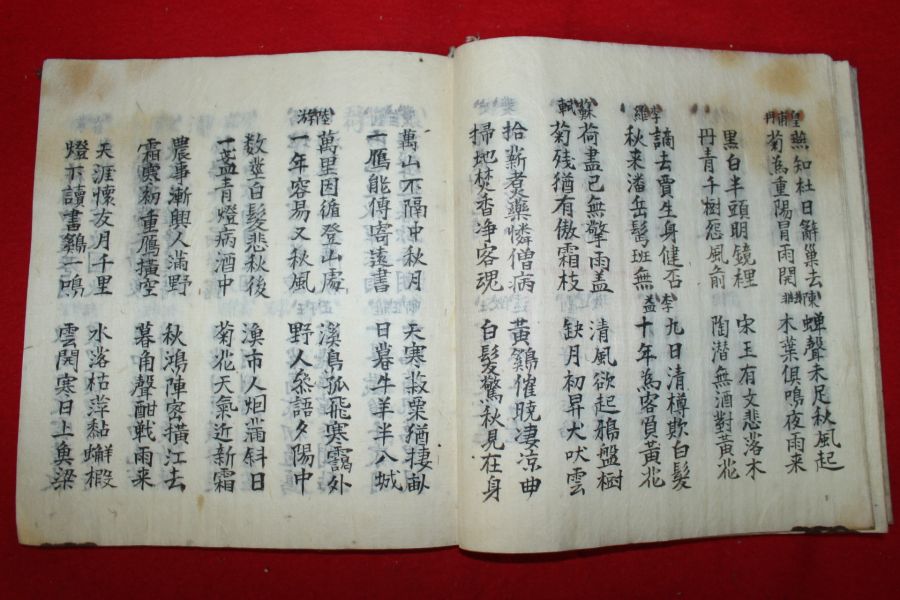 皇甫冉
燕知杜日辭巢去 蟬聲未足秋風起
菊爲重陽冒雨開 木葉俱鳴夜雨来
黑白半頭明鏡裡 宋玉有文悲落木
丹青千樹怨風前 陶潛無酒對黃花
謫去賈生身健否 李益 九日清樽欺白髮
秋来潘岳鬂班無 十年爲客負黃花
蘇軾
荷盡已無擎雨盖 清風欲起鴉盤樹
菊残猶有傲霜枝 缺月初昇犬吠雲
拾薪煑藥憐僧病 黃鷄催曉凄凉曲
掃地焚香净客魂 白髮驚秋見在身
萬山不隔中秋月 天寒粟猶棲畝
一鴈能傳寄遠書 日暮牛羊半入城
陸游
萬里因循登山處 溪鳥孤飛寒靄外
一年容易又秋風 野人參語夕陽中
数莖白髮悲秋後 漁市人烟滿斜日
一盞青燈病酒中 菊花天氣近新霜
農事漸興人滿野 秋鴻陣密橫江去
霜寒初重鴈橫空 暮角聲酣戰雨来
天涯懷友月千里 水落枯萍黏蠏椵
燈下讀書鷄一鳴 雲開寒日上魚梁